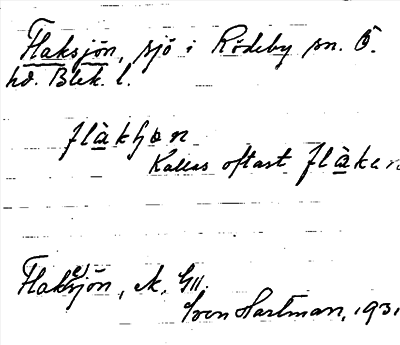 Flaksjön, sjö i Rödeby sn. Ö.
hd. Blek. l.
flàkʃøn
Kallas oftast flàken
Flak(s)jön, 
Sven Hartman, 1931